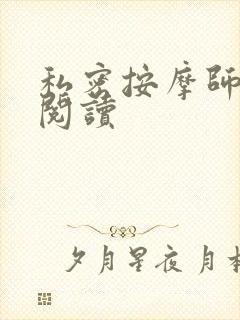 私密按摩師
閱讀
夕月星夜月